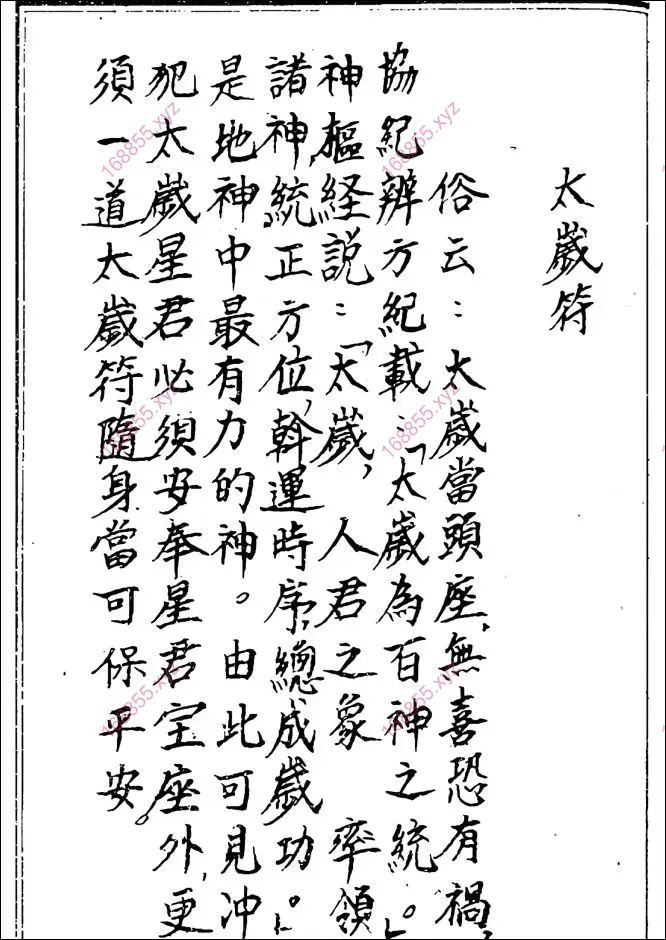 太歲符
俗云：太歲當頭座，無喜恐有禍，
協紀辨方紀載：「太歲為百神之統。」
神樞経説：「太歲，人君之象　率領
諸神，統正方位，斡運時序，總成歲功。」
是地神中最有力的神。由此可見冲
犯太歲星君必須安奉星君宝座外，更
須一道太歲符隨身當可保平安。
168855.xyz
168855.xyz
168855.xyz
168855.xyz
168855.xyz
168855.xyz